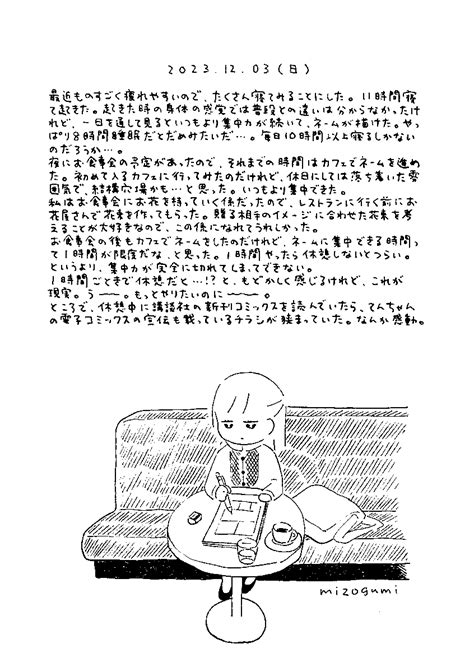 2023.12.03(日)
最近ものすごく疲れやすいので、たくさん寝てみることにした。11時間寝
て起きた。起きた時の身体の感覚では普段との違いは分からなかったけ
れど、一日を通して見るといつもより集中力が続いて、ネームが描けた。やっ
ぱり8時間睡眠だとだめみたいだ…。毎日10時間以上寝るしかない
のだろうか…。
夜にお食事会の予定があったので、それまでの時間はカフェでネームを進め
た。初めて入るカフェに行ってみたのだけれど、休日にしては落ち着いた雰
囲気で、結構穴場かも…と思った。いつもより集中できた。
私はお食事会にお花を持っていく係だったので、レストランに行く前にお
花屋さんで花束を作ってもらった。贈る相手のイメージに合わせた花束を考
えることが大好きなので、この係になれてうれしかった。
お食事会の後もカフェでネームをしたのだけれど、ネームに集中できる時間っ
て1時間が限度だな、と思った。1時間やったら休憩しないとつらい。
というより、集中力が完全に切れてしまってできない。
1時間ごときで休憩だと…!?と、もどかしく感じるけれど、これが
現実。うーー。もっとやりたいのにーー。
ところで、休憩中に講談社の新刊コミックスを読んでいたら、てんちゃん
の電子コミックスの宣伝も載っているチラシが挟まっていた。なんか感動。
mizogumi